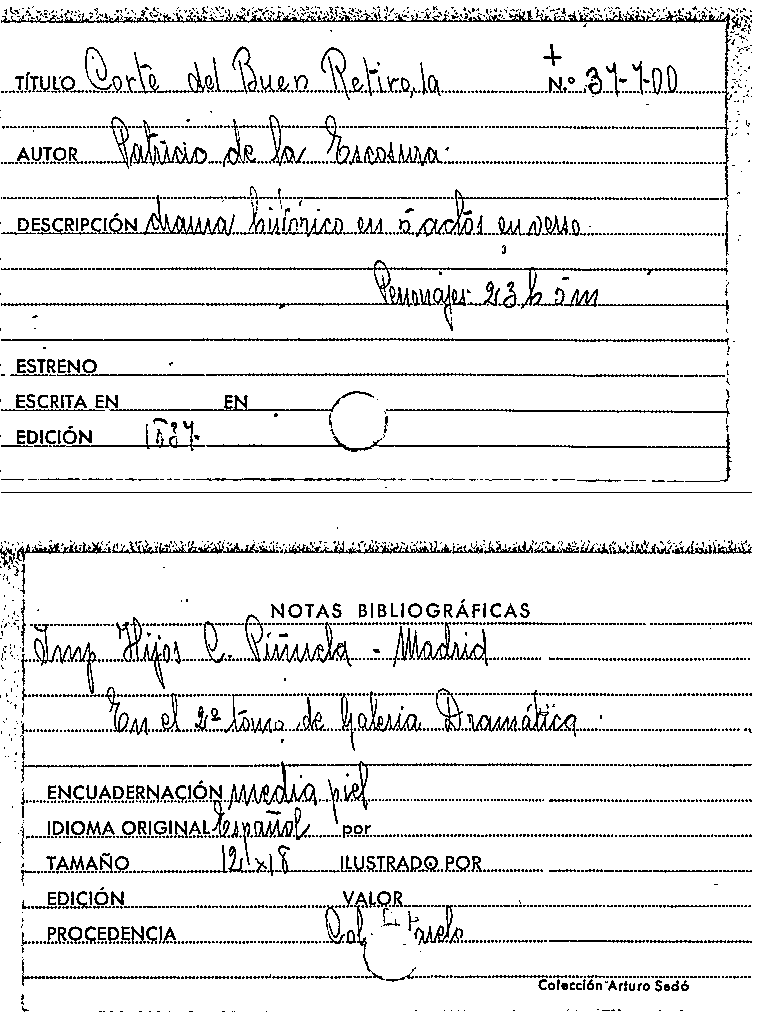 TÍTULO Corte del Buen Retiro, la + N.º 37-7-00
AUTOR Patricio de la Escosura.
DESCRIPCIÓN drama histórico en 5 actos en verso.
Personajes 23 h 5 m
ESTRENO
ESCRITA EN EN
EDICIÓN 1837-
NOTAS BIBLIOGRÁFICAS
Imp Hijos C. Piñuela - Madrid
En el 2º tomo de Galeria Dramática.
ENCUADERNACIÓN media piel
IDIOMA ORIGINAL Español por
TAMAÑO 12 x 18 ILUSTRADO POR
EDICIÓN VALOR
PROCEDENCIA Col
Colección Arturo Sedó